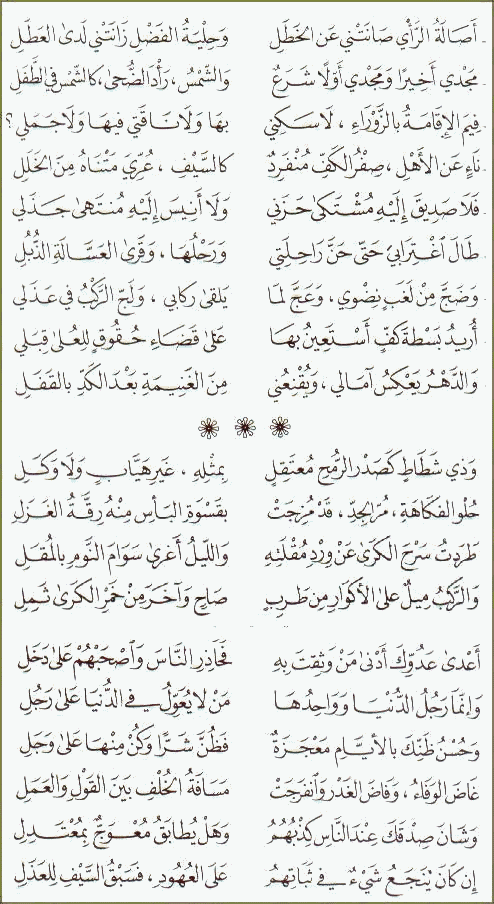 أَصَالَةُ الرَّأْيِ صَانَتْنِي عَنِ الخَطَلِ وَحِلْيَةُ الفَضْلِ زَانَتْنِي لَدَى العَطَلِ
مَجْدِي أَخِيرًا وَمَجْدِي أَوَّلًا شَرَعٌ وَالشَّمْسُ، رَأْدَ الضُّحَى، كَالشَّمْسِ فِي الطَّفَلِ
فِيمَ الإِقَامَةُ بِالزَّوْرَاءِ، لَا سَكَنِي بِهَا وَلَا نَاقَتِي فِيهَا وَلَا جَمَلِي؟
نَاءٍ عَنِ الأَهْلِ، صِفْرُ الكَفِّ مُنْفَرِدٌ كَالسَّيْفِ، عُرِّيَ مَتْنَاهُ مِنَ الخَلَلِ
فَلَا صَدِيقَ إِلَيْهِ مُشْتَكَى حَزَنِي وَلَا أَنِيسَ إِلَيْهِ مُنْتَهَى جَذَلِي
طَالَ اغْتِرَابِيَ حَتَّى حَنَّ رَاحِلَتِي وَرَحْلُهَا، وَقَرَى العَسَّالَةِ الذُّبُلِ
وَضَجَّ مِنْ لَغَبٍ نِضْوِي، وَعَجَّ لِمَا يَلْقَى رِكَابِي، وَلَجَّ الرَّكْبُ فِي عَذَلِي
أُرِيدُ بَسْطَةَ كَفٍّ أَسْتَعِينُ بِهَا عَلَى قَضَاءِ حُقُوقٍ لِلْعُلَى قِبَلِي
وَالدَّهْرُ يَعْكِسُ آمَالِي، وَيُقْنِعُنِي مِنَ الغَنِيمَةِ بَعْدَ الكَدِّ بِالقَفَلِ
وَذِي شَطَاطٍ كَصَدْرِ الرُّمْحِ مُعْتَقِلٍ بِمِثْلِهِ، غَيْرِ هَيَّابٍ وَلَا وَكَلِ
حُلْوِ الفُكَاهَةِ، مُرِّ الجِدِّ، قَدْ مُزِجَتْ بِقَسْوَةِ البَأْسِ مِنْهُ رِقَّةُ الغَزَلِ
طَرَدْتُ سَرْحَ الكَرَى عَنْ وِرْدِ مُقْلَتِهِ وَاللَّيْلُ أَغْرَى سَوَامَ النَّوْمِ بِالمُقَلِ
وَالرَّكْبُ مِيلٌ عَلَى الأَكْوَارِ مِنْ طَرِبٍ صَاحٍ وَآخَرَ مِنْ خَمْرِ الكَرَى ثَمِلِ
أَعْدَى عَدُوِّكَ أَدْنَى مَنْ وَثِقْتَ بِهِ فَحَاذِرِ النَّاسَ وَاصْحَبْهُمْ عَلَى دَخَلِ
وَإِنَّمَا رَجُلُ الدُّنْيَا وَوَاحِدُهَا مَنْ لَا يُعَوِّلُ فِي الدُّنْيَا عَلَى رَجُلِ
وَحُسْنُ ظَنِّكَ بِالأَيَّامِ مَعْجَزَةٌ فَظُنَّ شَرًّا وَكُنْ مِنْهَا عَلَى وَجَلِ
غَاضَ الوَفَاءُ، وَفَاضَ الغَدْرُ وَانْفَرَجَتْ مَسَافَةُ الخُلْفِ بَيْنَ القَوْلِ وَالعَمَلِ
وَشَانَ صِدْقَكَ عِنْدَ النَّاسِ كِذْبُهُمُ وَهَلْ يُطَابَقُ مُعْوَجٌّ بِمُعْتَدِلِ
إِنْ كَانَ يَنْجَعُ شَيْءٌ فِي ثَبَاتِهِمِ عَلَى العُهُودِ، فَسَبْقُ السَّيْفِ لِلْعَذَلِ